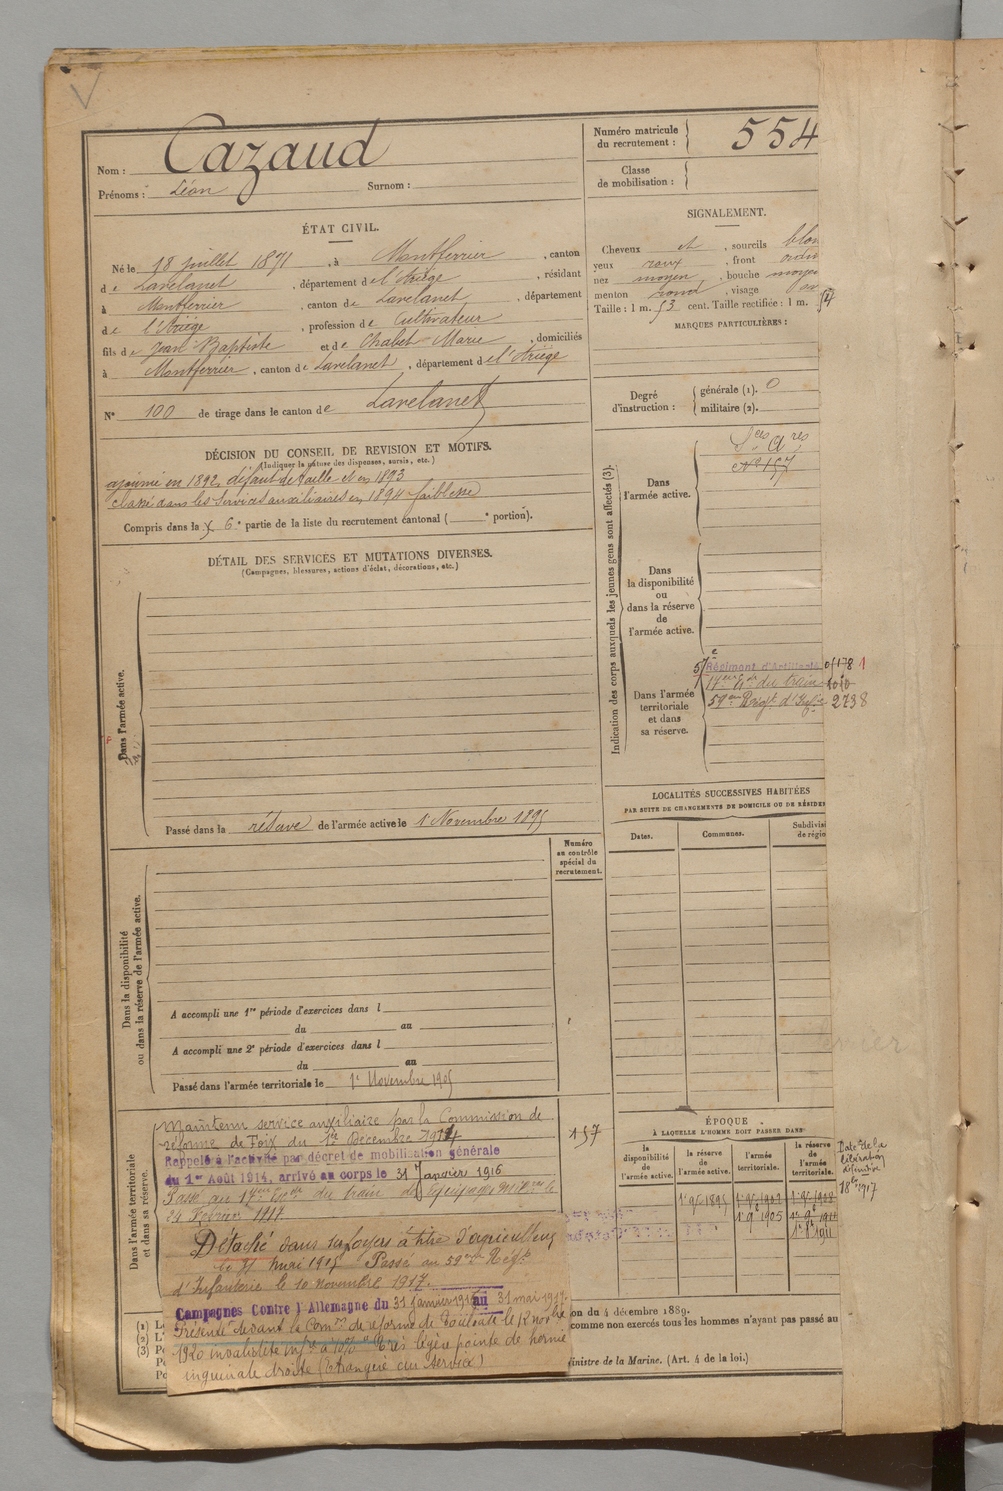 Nom : Cazaud
Prénoms : Léon Surnom :
Numéro matricule du recrutement : 554
Classe de mobilisation :
ÉTAT CIVIL.
Né le 18 juillet 1871, à Montferrier, canton
de Lavelanet, département de l'Ariège, résidant
à Montferrier, canton de Lavelanet, département
de l'Ariège, profession de Cultivateur
fils de Jean Baptiste et de Chabet Marie, domiciliés
à Montferrier, canton de Lavelanet, département de l'Ariège
N° 100 de tirage dans le canton de Lavelanet
SIGNALEMENT.
Cheveux et, sourcils blon
yeux roux, front ordin
nez moyen, bouche moyen
menton rond, visage
Taille : 1 m. 53 cent. Taille rectifiée : 1 m. 54
MARQUES PARTICULIÈRES :
Degré d'instruction : générale (1). 0
militaire (2).
DÉCISION DU CONSEIL DE REVISION ET MOTIFS.
(Indiquer la nature des dispenses, sursis, etc.)
ajourné en 1892, défaut de taille et en 1893
classé dans les Services auxiliaires en 1894 faiblesse
Compris dans la 6e partie de la liste du recrutement cantonal ( e portion).
DÉTAIL DES SERVICES ET MUTATIONS DIVERSES.
(Campagnes, blessures, actions d'éclat, décorations, etc.)
Dans l'armée active.
Passé dans la réserve de l'armée active le 1 Novembre 1895
Indication des corps auxquels les jeunes gens sont affectés (3).
Dans l'armée active.
Sces Ares
N° 157
Dans la disponibilité ou dans la réserve de l'armée active.
Dans l'armée territoriale et dans sa réserve.
57e Régiment d'Artillerie 1
17eme Eon du train
59eme Régt d'Infie 2738
LOCALITÉS SUCCESSIVES HABITÉES
PAR SUITE DE CHANGEMENTS DE DOMICILE OU DE RÉSIDEN
Dates. Communes. Subdivisi de régio
Numéro au contrôle spécial du recrutement.
Dans la disponibilité ou dans la réserve de l'armée active.
A accompli une 1re période d'exercices dans l
du au
A accompli une 2e période d'exercices dans l
du au
Passé dans l'armée territoriale le 1r Novembre 1905
Dans l'armée territoriale et dans sa réserve.
Maintenu service auxiliaire par la Commission de
réforme de Foix du 1er Décembre 1914
157
Rappelé à l'activité par décret de mobilisation générale
du 1er Août 1914, arrivé au corps le 31 Janvier 1916
Passé au 17eme Eon du train des Equipages Mil.res le
24 Février 1917
Détaché dans ses foyers à titre d'agriculteur
le 31 mai 1917 Passé au 59eme Régt
d'Infanterie le 10 novembre 1917.
Campagnes Contre l'Allemagne du 31 Janvier 1916 au 31 mai 1917.
Présenté devant la Comon de réforme de Toulouse le 12 nov bre
1920 invalidité infre à 10% très légère pointe de hernie
inguinale droite (Etrangère au service)
ÉPOQUE
À LAQUELLE L'HOMME DOIT PASSER DANS
la disponibilité de l'armée active. la réserve de l'armée active. l'armée territoriale. la réserve de l'armée territoriale.
1r 9e 1895
1r 9e 1905 1r 9e 1911
Date de la libération définitive
(1)
(2)
(3)
on du 4 décembre 1889.
comme non exercés tous les hommes n'ayant pas passé au
inistre de la Marine. (Art. 4 de la loi.)